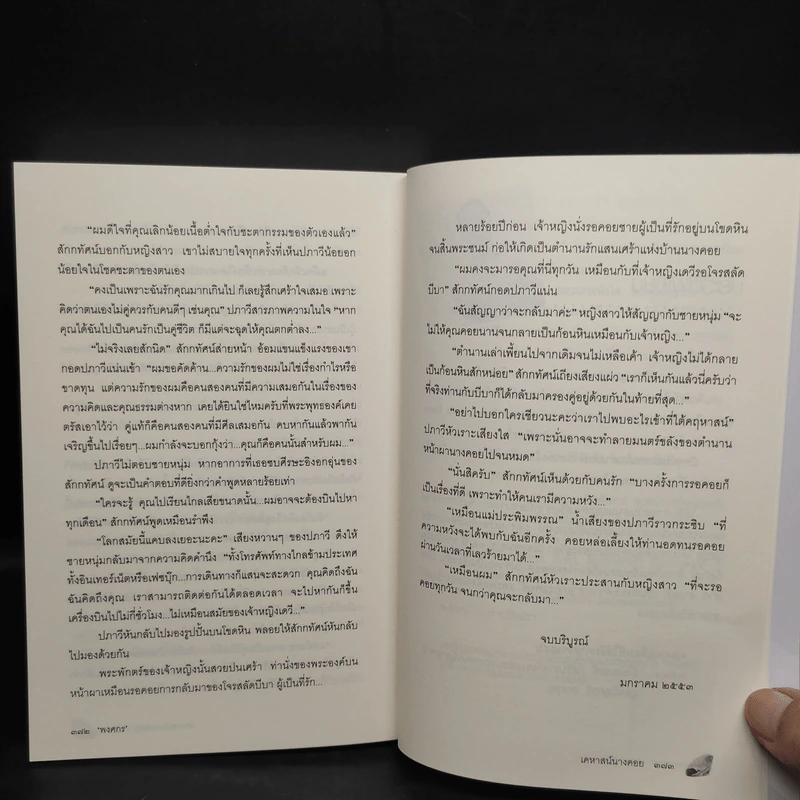 “ผมดีใจที่คุณเลิกน้อยเนื้อต่ำใจกับชะตากรรมของตัวเองแล้ว”
สักกทัศน์บอกกับหญิงสาว เขาไม่สบายใจทุกครั้งที่เห็นปภาวีน้อยอก
น้อยใจในโชคชะตาของตนเอง
“คงเป็นเพราะฉันรักคุณมากเกินไป ก็เลยรู้สึกเศร้าใจเสมอ เพราะ
คิดว่าตนเองไม่คู่ควรกับคนดีๆ เช่นคุณ” ปภาวีสารภาพความในใจ “หาก
คุณได้ฉันไปเป็นคนรักเป็นคู่ชีวิต ก็มีแต่จะฉุดให้คุณตกต่ำลง...”
“ไม่จริงเลยสักนิด” สักกทัศน์ส่ายหน้า อ้อมแขนแข็งแรงของเขา
กอดปภาวีแน่นเข้า “ผมขอคัดค้าน...ความรักของผมไม่ใช่เรื่องกำไรหรือ
ขาดทุน แต่ความรักของผมคือคนสองคนที่มีความเสมอกันในเรื่องของ
ความคิดและคุณธรรมต่างหาก เคยได้ยินใช่ไหมครับที่พระพุทธองค์เคย
ตรัสเอาไว้ว่า คู่แท้ก็คือคนสองคนที่มีศีลเสมอกัน คบหากันแล้วพากัน
เจริญขึ้นไปเรื่อยๆ...ผมกำลังจะบอกกุ้งว่า...คุณก็คือคนนั้นสำหรับผม...”
ปภาวีไม่ตอบชายหนุ่ม หากอาการที่เธอซบศีรษะอิงอกอุ่นของ
สักกทัศน์ ดูจะเป็นคำตอบที่ดียิ่งกว่าคำพูดหลายร้อยเท่า
“ใครจะรู้ คุณไปเรียนไกลเสียขนาดนั้น...ผมอาจจะต้องบินไปหา
ทุกเดือน” สักกทัศน์พูดเหมือนรำพึง
“โลกสมัยนี้แคบลงเยอะนะคะ” เสียงหวานๆ ของปภาวี ดึงให้
ชายหนุ่มกลับมาจากความคิดคำนึง “ทั้งโทรศัพท์ทางไกลข้ามประเทศ
ทั้งอินเทอร์เน็ตหรือเฟซบุ๊ก...การเดินทางก็แสนจะสะดวก คุณคิดถึงฉัน
ฉันคิดถึงคุณ เราสามารถติดต่อกันได้ตลอดเวลา จะไปหากันก็ขึ้น
เครื่องบินไปไม่กี่ชั่วโมง...ไม่เหมือนสมัยของเจ้าหญิงเดวี...”
ปภาวีหันกลับไปมองรูปปั้นบนโขดหิน พลอยให้สักกทัศน์หันกลับ
ไปมองด้วยกัน
พระพักตร์ของเจ้าหญิงนั้นสวยปนเศร้า ท่านั่งของพระองค์บน
หน้าผาเหมือนรอคอยการกลับมาของโจรสลัดบีบา ผู้เป็นที่รัก...
๓๗๒ ‘พงศกร’
หลายร้อยปีก่อน เจ้าหญิงนั่งรอคอยชายผู้เป็นที่รักอยู่บนโขดหิน
จนสิ้นพระชนม์ ก่อให้เกิดเป็นตำนานรักแสนเศร้าแห่งบ้านนางคอย
“ผมคงจะมารอคุณที่นี่ทุกวัน เหมือนกับที่เจ้าหญิงเดวีรอโจรสลัด
บีบา” สักกทัศน์กอดปภาวีแน่น
“ฉันสัญญาว่าจะกลับมาค่ะ” หญิงสาวให้สัญญากับชายหนุ่ม “จะ
ไม่ให้คุณคอยนานจนกลายเป็นก้อนหินเหมือนกับเจ้าหญิง...”
“ตำนานเล่าเพี้ยนไปจากเดิมจนไม่เหลือเค้า เจ้าหญิงไม่ได้กลาย
เป็นก้อนหินสักหน่อย” สักกทัศน์เถียงเสียงแผ่ว “เราก็เห็นกันแล้วนี่ครับว่า
ที่จริงท่านกับบีบาก็ได้กลับมาครองคู่อยู่ด้วยกันในท้ายที่สุด...”
“อย่าไปบอกใครเชียวนะคะว่าเราไปพบอะไรเข้าที่ใต้คฤหาสน์”
ปภาวีหัวเราะเสียงใส “เพราะนั่นอาจจะทำลายมนตร์ขลังของตำนาน
หน้าผานางคอยไปจนหมด”
“นั่นสิครับ” สักกทัศน์เห็นด้วยกับคนรัก “บางครั้งการรอคอยก็
เป็นเรื่องที่ดี เพราะทำให้คนเรามีความหวัง...”
“เหมือนแม่ประพิมพรรณ” น้ำเสียงของปภาวีราวกระซิบ “ที่
ความหวังจะได้พบกับฉันอีกครั้ง คอยหล่อเลี้ยงให้ท่านอดทนรอคอย
ผ่านวันเวลาที่เลวร้ายมาได้...”
“เหมือนผม” สักกทัศน์หัวเราะประสานกับหญิงสาว “ที่จะรอ
คอยทุกวัน จนกว่าคุณจะกลับมา...”
จบบริบูรณ์
มกราคม ๒๕๕๓
เคหาสน์นางคอย ๓๗๓